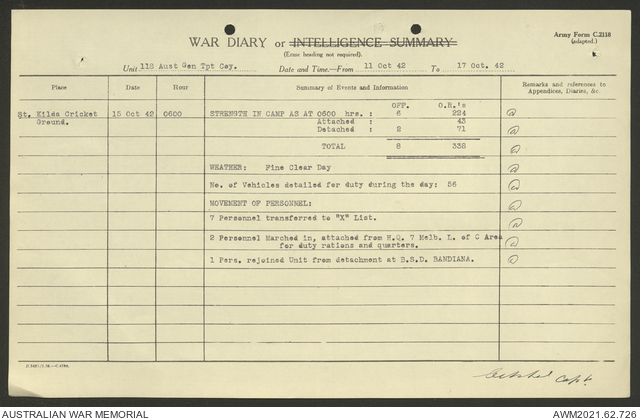 Army Form C.2118
(adapted.)
WAR DIARY or INTELLIGENCE SUMMARY
(Erase heading not required).
Unit 118 Aust Gen Tpt Coy. Date and Time.—From 11 Oct 42 To 17 Oct. 42
Place Date Hour Summary of Events and Information Remarks and references to Appendices, Diaries, &c.
OFF. O.R.'s
St. Kilda Cricket 15 Oct 42 0600 STRENGTH IN CAMP AS AT 0600 hrs. : 6 224
Ground. Attached : 43
Detached : 2 71
TOTAL 8 338
WEATHER: Fine Clear Day
No. of Vehicles detailed for duty during the day: 56
MOVEMENT OF PERSONNEL:
7 Personnel transferred to "X" List.
2 Personnel Marched in, attached from H.Q. 7 Melb. L. of C Area
for duty rations and quarters.
1 Pers. rejoined Unit from detachment at B.S.D. BANDIANA.
Capt.
AUSTRALIAN WAR MEMORIAL AWM2021.62.726